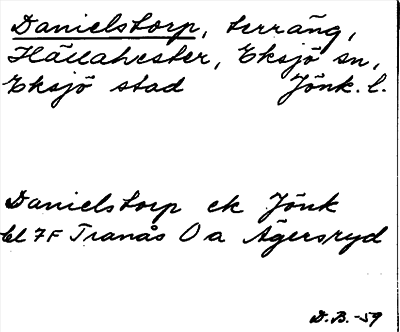 Danielstorp, terräng,
Hällahester, Eksjö sn,
Eksjö stad Jönk. l.
Danielstorp ek Jönk
bl 7F Tranås O a Ägersryd
D.B. -59